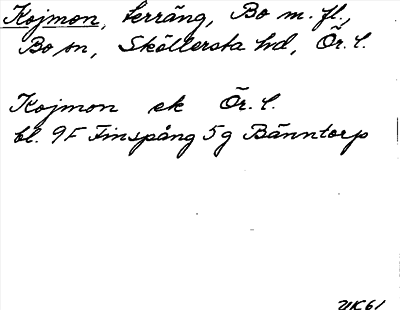 Kojmon, terräng, Bo m. fl.,
Bo sn, Sköllersta hd, Ör. l.
Kojmon ek Ör. l.
bl. 9F Finspång 5g Bänntorp
UK61